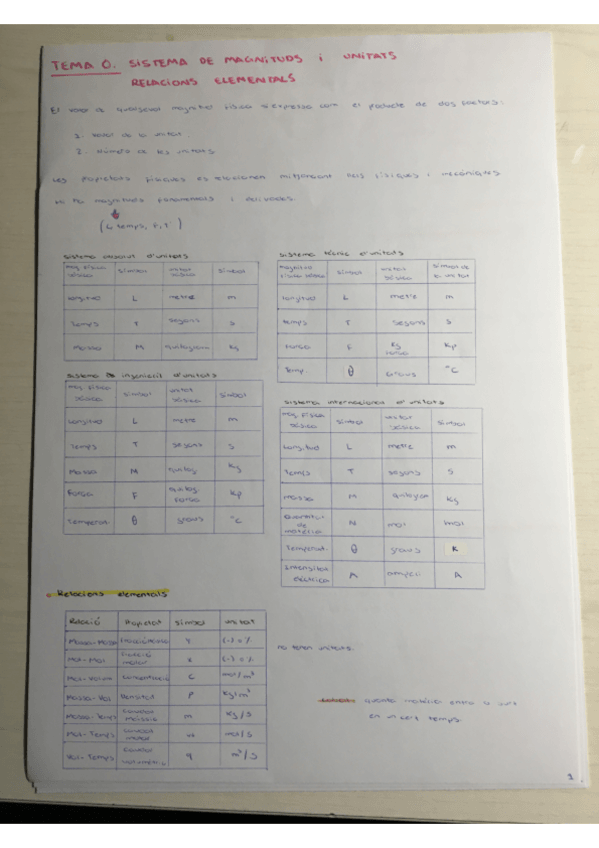 TEMA 0. SISTEMA DE MAGNITUDS i UNITATS
RELACIONS ELEMENTALS
El valor de qualsevol magnitud física s'expressa com el producte de dos factors:
1. Valor de la unitat.
2. Número de les unitats
Les propietats físiques es relacionen mitjançant lleis físiques i mecàniques
magnituds fonamentals i derivades.
(L, temps,
sistema d'unitats
mag. física bàsica símbol unitat bàsica símbol
longitud L metre m
Temps T segons s
Massa M quilogram kg
sistema tècnic d'unitats
magnitud física bàsica símbol unitat bàsica símbol de la unitat
longitud L metre m
temps T segons s
Força F kg força kp
Temp. θ Graus °C
sistema enginyeril d'unitats
mag. física bàsica símbol unitat bàsica símbol
Longitud L metre m
Temps T segons s
Massa M quilog kg
Força F quilog força kp
Temperat θ graus °C
sistema internacional d'unitats
mag. física bàsica símbol unitat bàsica símbol
Longitud L metre m
Temps T segons s
Massa M quilogram kg
Quantitat de matèria N mol mol
Temperat. θ graus K
Intensitat elèctrica A amperi A
Relacions elementals
Relació Propietat símbol unitat
Massa-Massa Fracció màssica Y (-) = %
Mol-Mol Fracció molar X (-) = %
Mol-Volum concentració C mol/m³
Massa-Vol Densitat ρ kg/m³
Massa-Temps cabal màssic m kg/s
Mol-Temps cabal molar mol/s
Vol-Temps cabal volumètric q m³/s
no tenen unitats.
quanta matèria entra o surt
en un cert temps
1